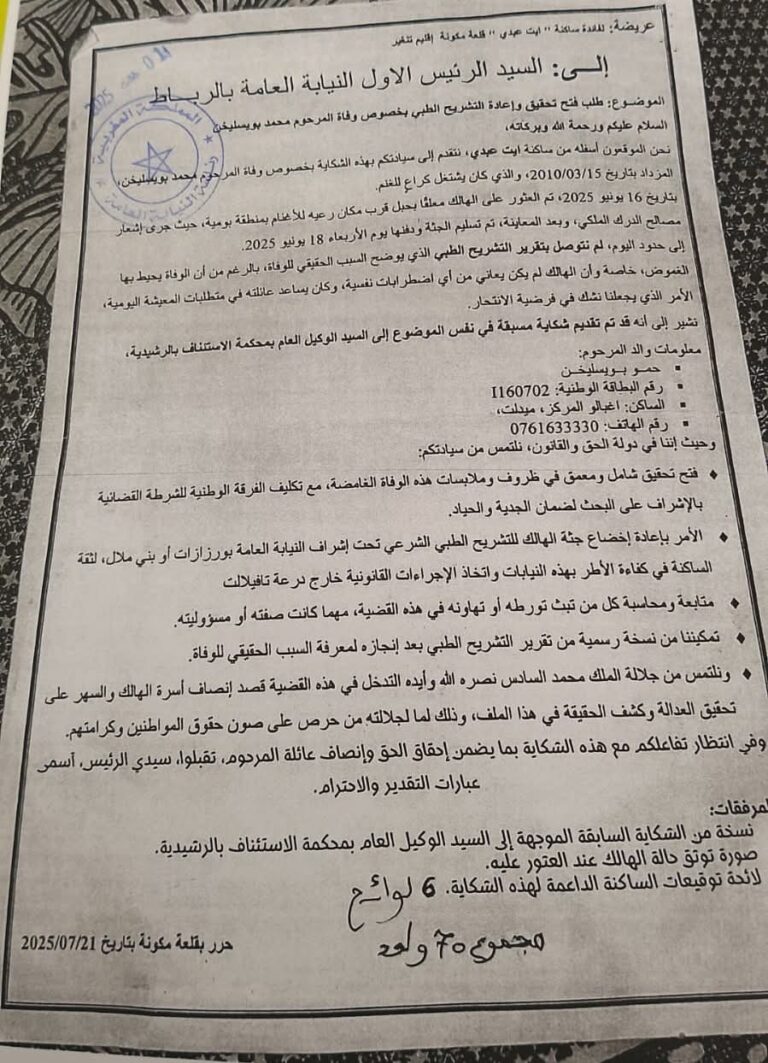 عريضة: لفائدة ساكنة "ايت عبدي" قلعة مكونة إقليم تنغير
إلـــى: السيد الرئيس الاول النيابة العامة بالربــاط
الموضــوع: طلب فتح تحقيق وإعادة التشريح الطبي بخصوص وفاة المرحوم محمد بويسليخن
السلام عليكم ورحمة الله وبركاته،
نحن الموقعون أسفله من ساكنة ايت عبدي، نتقدم إلى سيادتكم بهذه الشكاية بخصوص وفاة المرحوم محمد بويسليخن،
المزداد بتاريخ 2010/03/15، والذي كان يشتغل كراعٍ للغنم.
بتاريخ 16 يونيو 2025، تم العثور على الهالك معلقًا بحبل قرب مكان رعيه للأغنام بمنطقة بومية، حيث جرى إشعار
مصالح الدرك الملكي، وبعد المعاينة، تم تسليم الجثة ودفنها يوم الأربعاء 18 يونيو 2025.
إلى حدود اليوم، لم نتوصل بتقرير التشريح الطبي الذي يوضح السبب الحقيقي للوفاة، بالرغم من أن الوفاة يحيط بها
الغموض، خاصة وأن الهالك لم يكن يعاني من أي اضطرابات نفسية، وكان يساعد عائلته في متطلبات المعيشة اليومية،
الأمر الذي يجعلنا نشك في فرضية الانتحار.
نشير إلى أنه قد تم تقديم شكاية مسبقة في نفس الموضوع إلى السيد الوكيل العام بمحكمة الاستئناف بالرشيدية،
معلومات والد المرحوم:
▪ حمو بــويسليخــن
▪ رقم البطاقة الوطنية: I160702
▪ الساكن: اغبالو المركز، ميدلت،
▪ رقم الهاتف: 0761633330
وحيث إننا في دولة الحق والقانون، نلتمس من سيادتكم:
♦ فتح تحقيق شامل ومعمق في ظروف وملابسات هذه الوفاة الغامضة، مع تكليف الفرقة الوطنية للشرطة القضائية
بالإشراف على البحث لضمان الجدية والحياد.
♦ الأمر بإعادة إخضاع جثة الهالك للتشريح الطبي الشرعي تحت إشراف النيابة العامة بورزازات أو بني ملال، لثقة
الساكنة في كفاءة الأطر بهذه النيابات واتخاذ الإجراءات القانونية خارج درعة تافيلالت
♦ متابعة ومحاسبة كل من تبث تورطه أو تهاونه في هذه القضية، مهما كانت صفته أو مسؤوليته.
♦ تمكيننا من نسخة رسمية من تقرير التشريح الطبي بعد إنجازه لمعرفة السبب الحقيقي للوفاة.
♦ ونلتمس من جلالة الملك محمد السادس نصره الله وأيده التدخل في هذه القضية قصد إنصاف أسرة الهالك والسهر على
تحقيق العدالة وكشف الحقيقة في هذا الملف، وذلك لما لجلالته من حرص على صون حقوق المواطنين وكرامتهم.
وفي انتظار تفاعلكم مع هذه الشكاية بما يضمن إحقاق الحق وإنصاف عائلة المرحوم، تقبلوا، سيدي الرئيس، أسمى
عبارات التقدير والاحترام.
المرفقات:
نسخة من الشكاية السابقة الموجهة إلى السيد الوكيل العام بمحكمة الاستئناف بالرشيدية.
صورة توثق حالة الهالك عند العثور عليه.
لائحة توقيعات الساكنة الداعمة لهذه الشكاية. 6 لوائح
مجموع 70 واحد
حرر بقلعة مكونة بتاريخ 2025/07/21
المملكة المغربية
رئاسة النيابة العامة